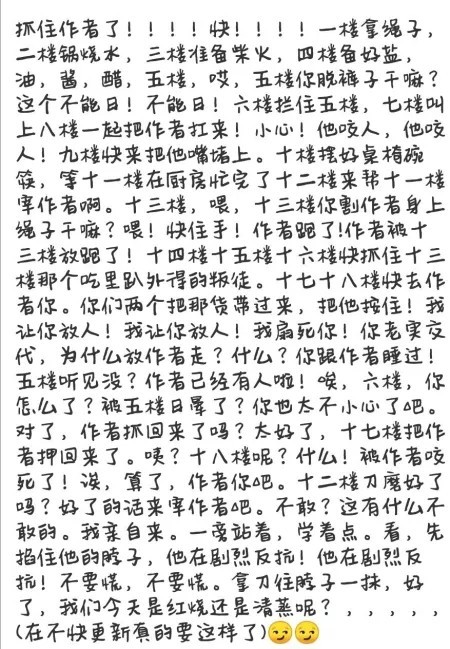 抓住作者了！！！！快！！！！一楼拿绳子，
二楼锅烧水，三楼准备柴火，四楼备好盐，
油，酱，醋，五楼，哎，五楼你脱裤子干嘛？
这个不能日！不能日！六楼拦住五楼，七楼叫
上八楼一起把作者扛来！小心！他咬人，他咬
人！九楼快来把他嘴堵上。十楼摆好桌椅碗
筷，等十一楼在厨房忙完了十二楼来帮十一楼
宰作者啊。十三楼，喂，十三楼你割作者身上
绳子干嘛？喂！快住手！作者跑了！作者被十
三楼放跑了！十四楼十五楼十六楼快抓住十三
楼那个吃里趴外得的叛徒。十七十八楼快去作
者你。你们两个把那货带过来，把他按住！我
让你放人！我让你放人！我扇死你！你老实交
代，为什么放作者走？什么？你跟作者睡过！
五楼听见没？作者已经有人啦！唉，六楼，你
怎么了？被五楼日晕了？你也太不小心了吧。
对了，作者抓回来了吗？太好了，十七楼把作
者押回来了。咦？十八楼呢？什么！被作者咬
死了！诶，算了，作者你吧。十二楼刀磨好了
吗？好了的话来宰作者吧。不敢？这有什么不
敢的。我亲自来。一旁站着，学着点。看，先
掐住他的脖子，他在剧烈反抗！他在剧烈反
抗！不要慌，不要慌。拿刀往脖子一抹，好
了，我们今天是红烧还是清蒸呢？，，，，，
(在不快更新真的要这样了)😏😏